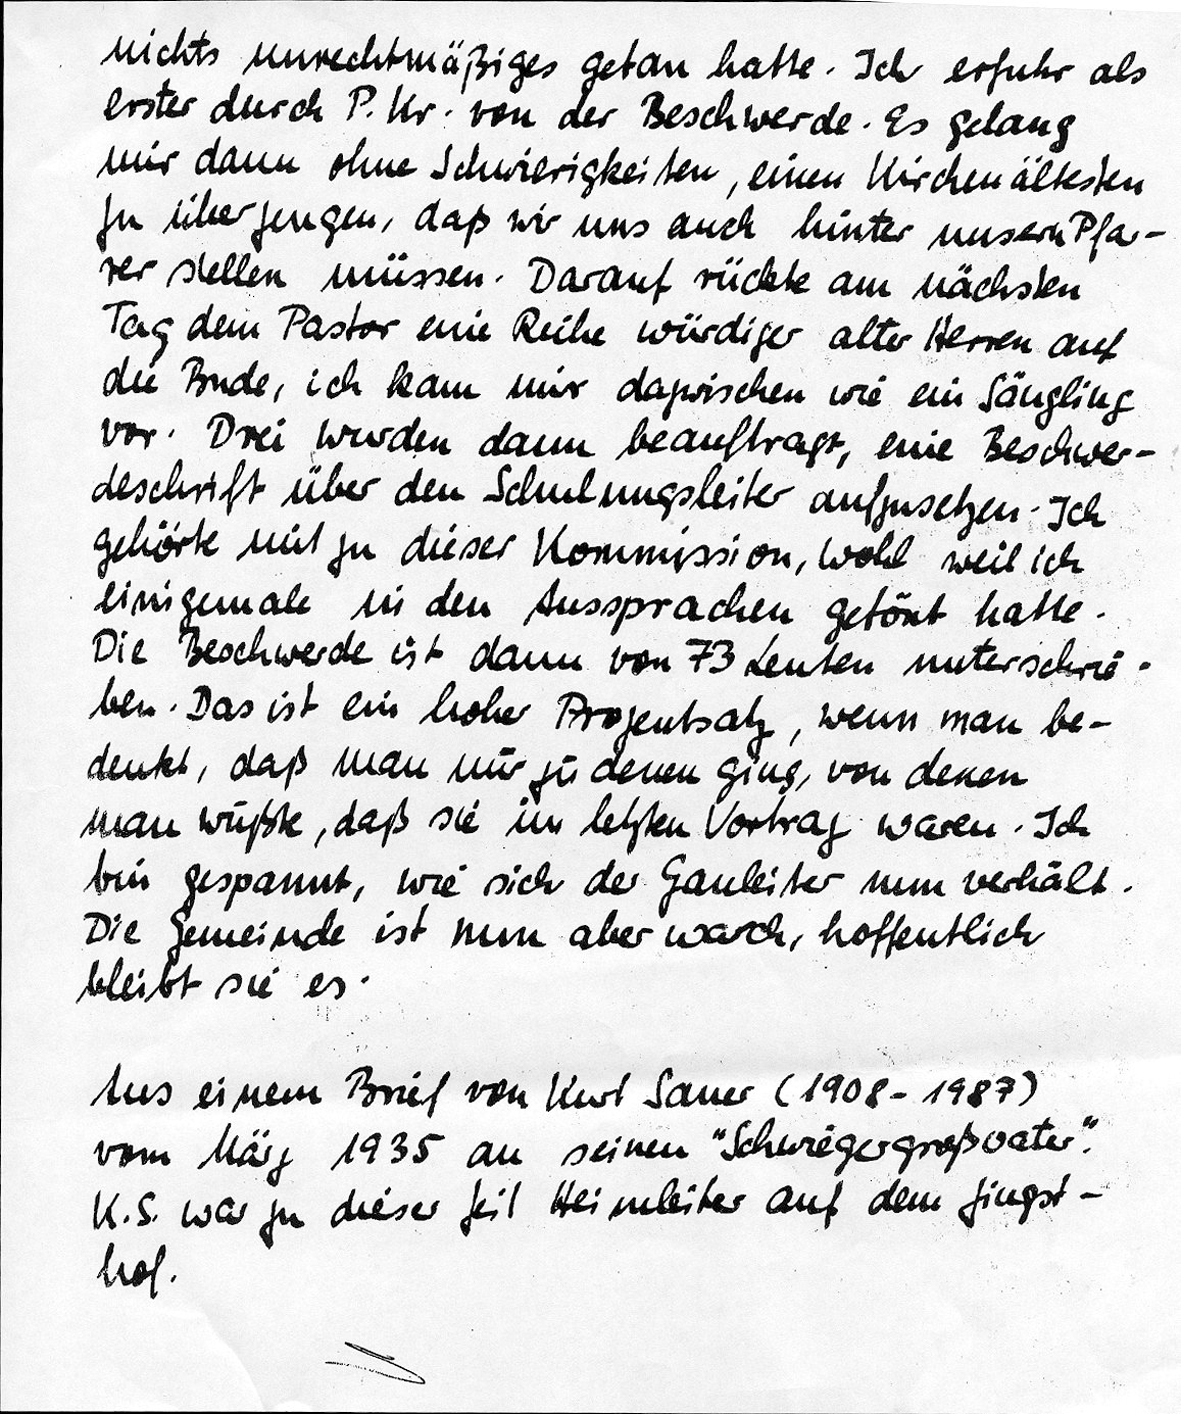 nichts unrechtmäßiges getan hatte. Ich erfuhr als
erster durch P. Kr. von der Beschwerde. Es gelang
mir dann ohne Schwierigkeiten, einen Kirchenältesten
zu überzeugen, daß wir uns auch hinter unsern Pfar-
rer stellen müssen. Darauf rückte am nächsten
Tag dem Pastor eine Reihe würdiger alter Herren auf
die Bude, ich kam mir dazwischen wie ein Säugling
vor. Drei wurden dann beauftragt, eine Beschwer-
deschrift über den Schulungsleiter aufzusetzen. Ich
gehörte mit zu dieser Kommission, wohl weil ich
einigemale in den Aussprachen getönt hatte.
Die Beschwerde ist dann von 73 Leuten unterschrie-
ben. Das ist ein hoher Prozentsatz, wenn man be-
denkt, daß man nur zu denen ging, von denen
man wußte, daß sie im letzten Vortrag waren. Ich
bin gespannt, wie sich der Gauleiter nun verhält.
Die Gemeinde ist nun aber wach, hoffentlich
bleibt sie es.
Aus einem Brief von Kurt Sauer (1908-1987)
vom März 1935 an seinen "Schwiegergroßvater".
K.S. war zu dieser Zeit Heimleiter auf dem Zingst-
hof.